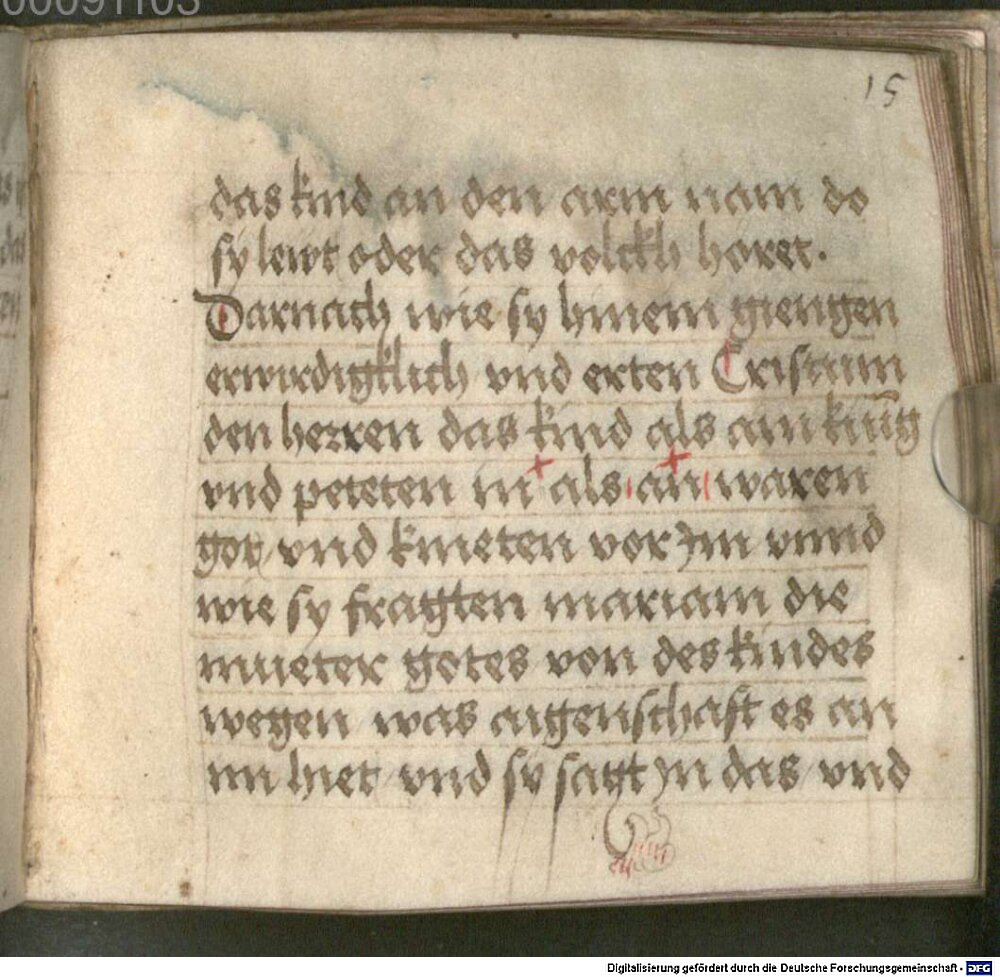 00091103
15
das kind an den arm nam do
sy lewt oder das volckh horet.
Darnach wie sy hinein giengen
erwirdigklich vnd erten Cristum
den herren das kind als ain kunig
vnd peteten in als ain waren
got vnd knieten vor Im vnnd
wie sy fragten mariam die
mueter gotes von des kindes
wegen was aigenschaft es an
im hiet vnd sy sagt in das vnd
Digitalisierung gefördert durch die Deutsche Forschungsgemeinschaft - DFG